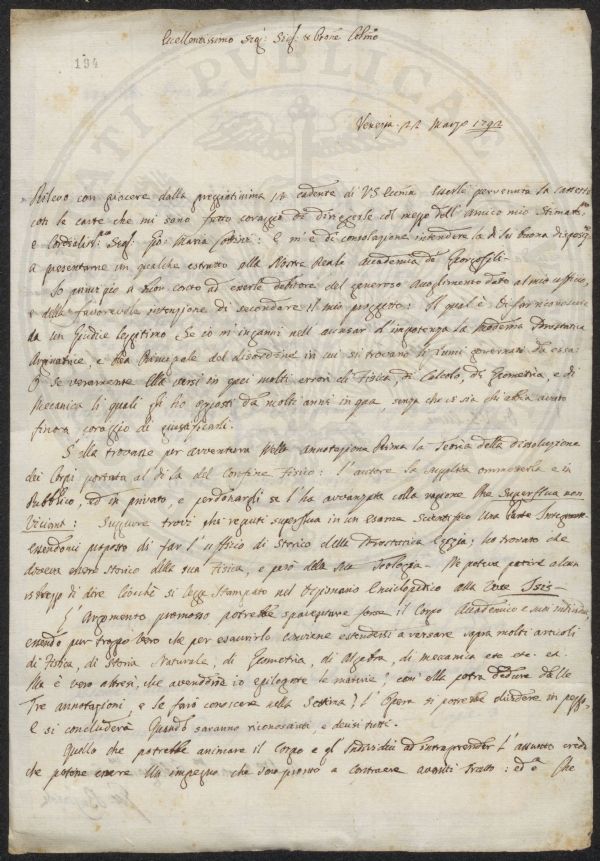 194
Eccellentissimo Sig:r Sig:r e Prone Colmo
Venezia 22 Marzo 1792
Rilevo con piacere dalla preggiatissima 12 cadente di V.S. Eccma esserle pervenuta la cassetta
con le carte che mi sono fatto coraggio di dirigerle col mezzo dell'Amico mio Stimatmo
e Cordialissmo Sigr: Gio: Maria : E m'è di consolazione intendere la di Lei buona disposiz:e
a presentarne un qualche estratto alla Nostra Reale Accademia de' Georgofili.
Io principio a buon conto ad esserle debitore del generoso accoglimento dato al mio ufficio,
e della favorevole intenzione di secondare il mio progetto: Il qual'è di far riconoscere
da un Giudice legittimo se io m'inganni nell'accusar d'impotenza la Moderna Idrostatica
Arginatrice, e Rea Principale del disordine in cui si trovano li Fiumi governati da essa:
O se veramente Ella versi in quei molti errori di Fisica, di Calcolo, di Geometria, e di
Mecanica li quali gli ho opposti da molti anni in qua, senza che vi sia chi abbia avuto
finora coraggio di giustificarli.
S'ella trovasse per avventura nella annotazione Prima la Teoria della dissoluzione
dei Corpi portata al di là del Confine Fisico: l'autore la supplica ommetterla e in
Pubblico, ed in privato, e perdonargli se l'ha avvanzata colla ragione che Superflua non
Vitiant: Seppure trovi che reputi superflua in un esame Scientifico una parte Integrante
essendomi proposto di far l'uffizio di Storico della Idrostatica Eggizia: ho trovato che
doveva essere Storico della sua Fisica, e però della sua Teologia. Nè poteva patire alcun
di dire ciocchè si legge Stampato nel Dizionario Enciclopedico alla Voce Isis.
L'Argomento promosso potrebbe spaventare forse il Corpo Accademico e suoi individui,
essendo pur troppo vero che per esaurirlo conviene estendersi a versare sopra molti articoli
di Fisica, di Storia Naturale, di Geometria, di Algebra, di mecanica etc. etc. ed.
Ma è vero altresì, che avendone io epilogate le materie; com'ella potrà dedure dalle
Tre annotazioni, e le farò conoscere nella Settima; l'Opera si potrebbe dividere in pezzi,
E si concluderà Quando saranno riconosciuti, e decisi tutti.
Quello che potrebbe animare il Corpo e gl'Individui ad intraprender l'assunto credo
che potesse essere Un impegno che sono pronto a contraere avanti tratto: ed è Che